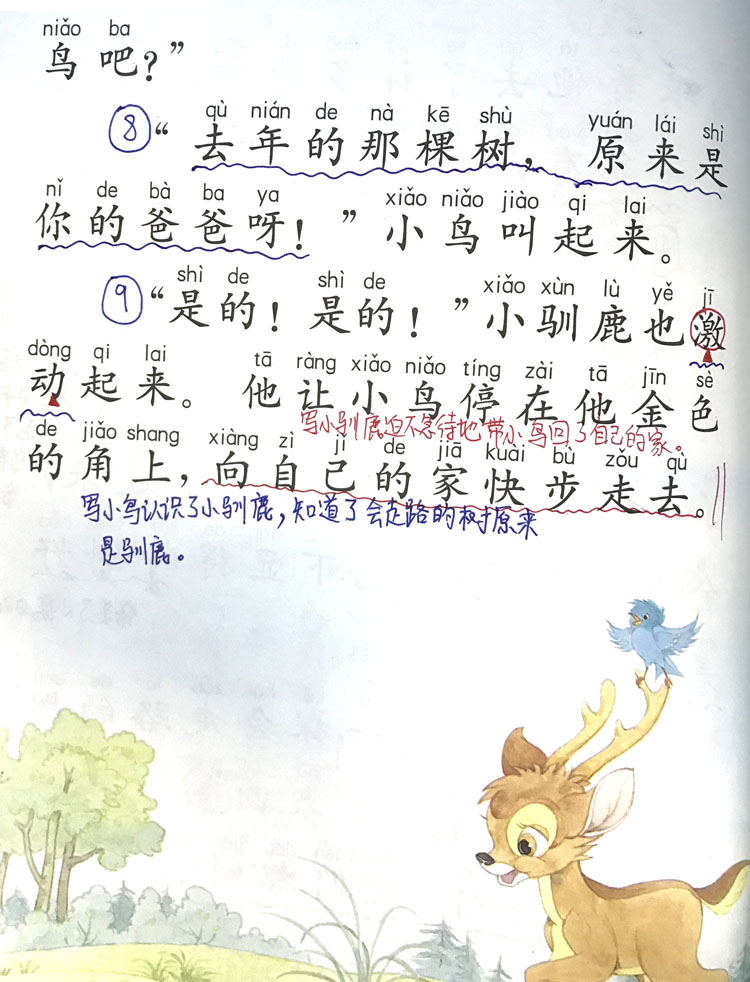 niǎo ba
鸟吧？”
qù nián de nà kē shù yuán lái shì
⑧“去年的那棵树，原来是
nǐ de bà ba ya xiǎo niǎo jiào qi lai
你的爸爸呀！”小鸟叫起来。
shì de shì de xiǎo xùn lù yě jī
⑨“是的！是的！”小驯鹿也激
dòng qi lai tā ràng xiǎo niǎo tíng zài tā jīn sè
动起来。他让小鸟停在他金色
写小驯鹿迫不急待地带小鸟回了自己的家。
de jiǎo shang xiàng zì jǐ de jiā kuài bù zǒu qù
的角上，向自己的家快步走去。
写小鸟认识了小驯鹿，知道了会走路的树原来
是驯鹿。